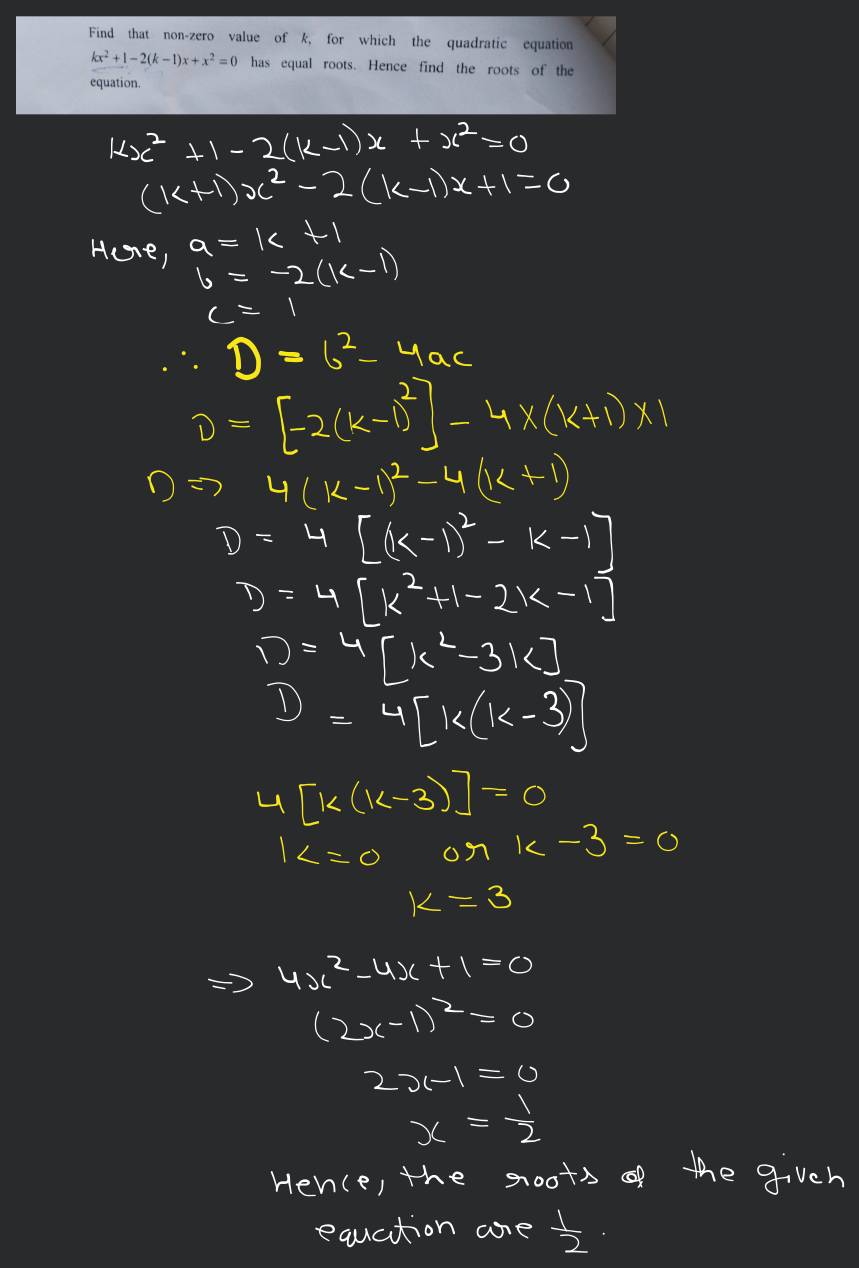 Find that non-zero value of k, for which the quadratic equation
kx² + 1 − 2(k − 1)x + x² = 0 has equal roots. Hence find the roots of the
equation.
kx² + 1 − 2(k−1)x + x² = 0
(k+1)x² − 2(k−1)x + 1 = 0
Here, a = k + 1
b = −2(k−1)
c = 1
∴ D = b² − 4ac
D = [−2(k−1)²] − 4×(k+1)×1
D ⇒ 4(k−1)² − 4(k+1)
D = 4 [(k−1)² − k − 1]
D = 4 [k² + 1 − 2k − 1]
D = 4 [k² − 3k]
D = 4 [k(k−3)]
4 [k(k−3)] = 0
k = 0 or k − 3 = 0
k = 3
⇒ 4x² − 4x + 1 = 0
(2x−1)² = 0
2x−1 = 0
x = 1/2
Hence, the roots of the given
equation are 1/2.